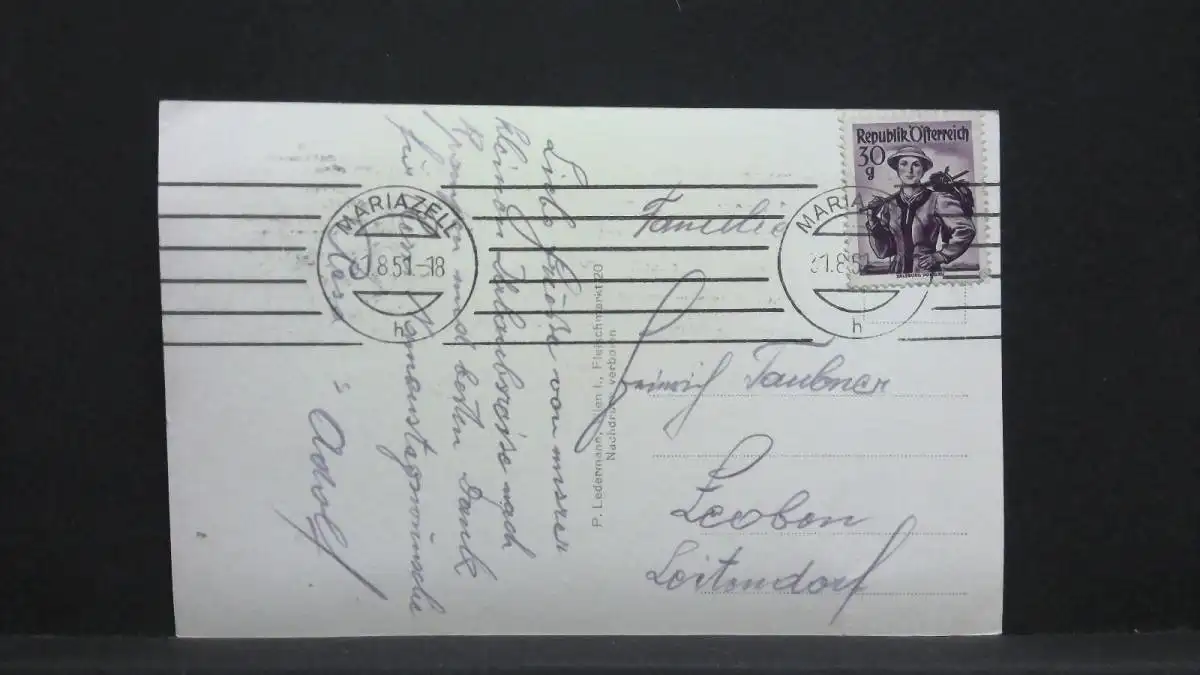 Liebe Grüsse von unsrer
kleinen Urlaubsreise nach
und besten Dank
für Namenstagswünsche
Resi u Adolf.
P. Ledermann, Wien I., Fleischmarkt 20
Nachdruck verboten
MARIAZELL
31.8.51-18
h
MARIAZ
31.8.51
h
Republik Österreich
30
g
Familie
Heinrich Taubner
Leoben
Leitendorf